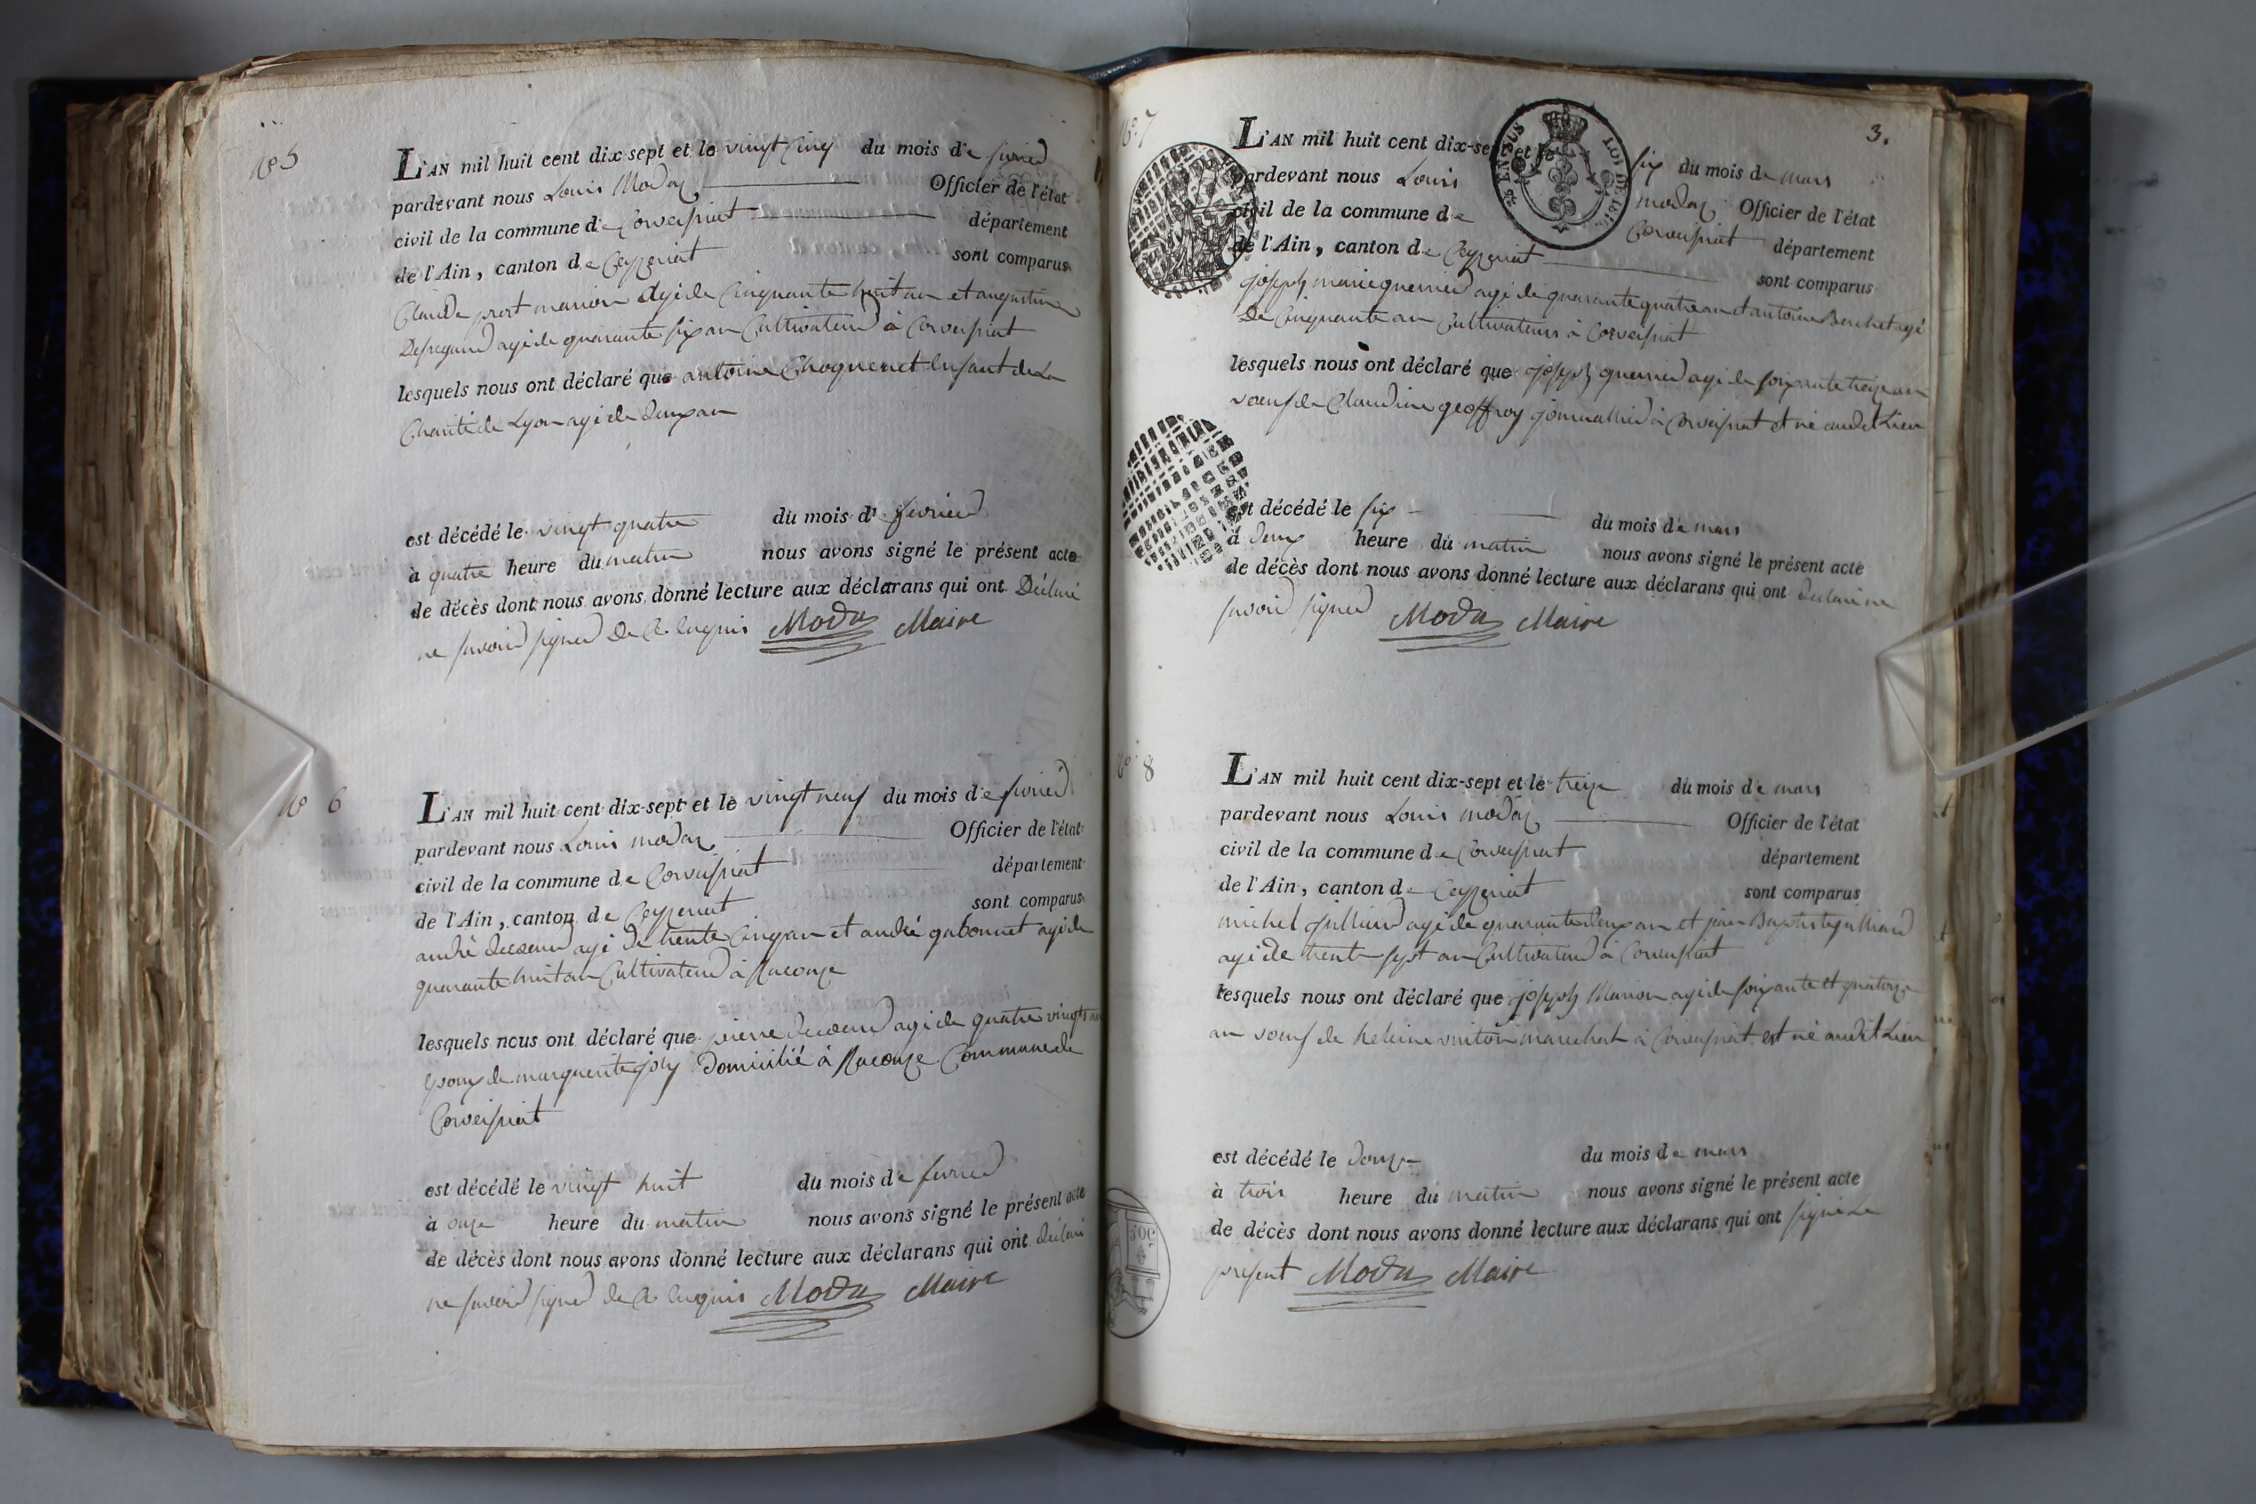 N° 5
L'AN mil huit cent dix-sept et le vingt cinq du mois de fevrier
pardevant nous Louis Moday Officier de l'état
civil de la commune de Corveissiat département
de l'Ain, canton de Ceyzeriat sont comparus
Claude prost marion agé de Cinquante huit an et augustin
agé de quarante six an Cultivateur à Corveissiat
lesquels nous ont déclaré que antoine Choquenet Enfant de La
Charité de Lyon agé de deux an
est décédé le vingt quatre du mois de fevrier
à quatre heure du matin nous avons signé le présent acte
de décès dont nous avons donné lecture aux déclarans qui ont Déclaré
ne savoir signer De Ce Enquis Moda Maire
N° 6
L'AN mil huit cent dix-sept et le vingt neuf du mois de fevrier
pardevant nous Louis moday Officier de l'état
civil de la commune de Corveissiat département
de l'Ain, canton de Ceyzeriat sont comparus
andré decoeur agé De trente Cinq an et andré gabonnet agé de
quarante huit an Cultivateur à Racouze
lesquels nous ont déclaré que pierre decoeur agé de quatre vingts an
Epoux de marguerite joly Domicilié à Racouze Commune de
Corveissiat
est décédé le vingt huit du mois de fevrier
à onze heure du matin nous avons signé le présent acte
de décès dont nous avons donné lecture aux déclarans qui ont déclaré
ne savoir signer de Ce Enquis Moda Maire
N° 7
3.
EN SUS
LOI DE 1816
L'AN mil huit cent dix-sept et le six du mois de mars
pardevant nous Louis moday Officier de l'état
civil de la commune de Corveissiat département
de l'Ain, canton de Ceyzeriat sont comparus
joseph marie guerrier agé de quarante quatre an et antoine Bershet agé
De Cinquante an Cultivateurs à Corveissiat
lesquels nous ont déclaré que joseph guerrier agé de soixante treize an
veuf de Claudine geoffroy journallier à Corveissiat et né audit Lieu
est décédé le six du mois de mars
à deux heure du matin nous avons signé le présent acte
de décès dont nous avons donné lecture aux déclarans qui ont declaré ne
savoir signer Moda Maire
N° 8
L'AN mil huit cent dix-sept et le treize du mois de mars
pardevant nous Louis moday Officier de l'état
civil de la commune de Corveissiat département
de l'Ain, canton de Ceyzeriat sont comparus
michel julliard agé de quarante deux an et jean Baptiste julliard
agé de trente sept an Cultivateur à Corveissiat
lesquels nous ont déclaré que joseph Marion agé de soixante et quatorze
an veuf de heleine vuiton marechal à Corveissiat et né audit Lieu
est décédé le douze du mois de mars
à trois heure du matin nous avons signé le présent acte
de décès dont nous avons donné lecture aux déclarans qui ont signé Le
present Moda Maire